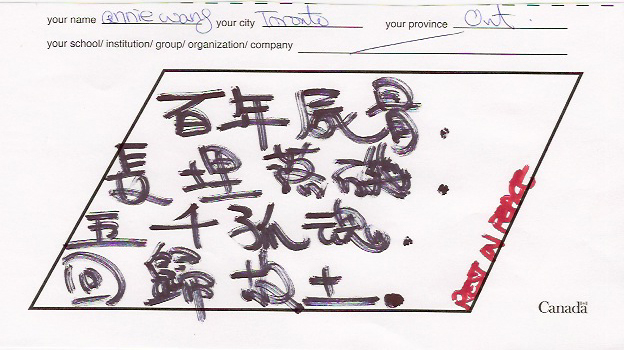 your name Annie Wang your city Toronto your province Ont.
your school/ institution/ group/ organization/ company
百年辰骨.
長埋荒.
五千孤魂.
回歸故土.
REST IN PEACE
Canada